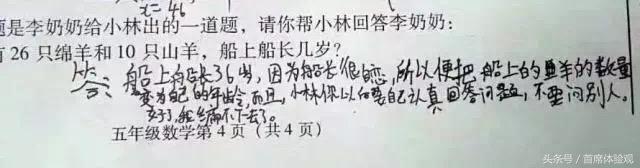 x=46
题是李奶奶给小林出的一道题，请你帮小林回答李奶奶：
有 26 只绵羊和 10 只山羊，船上船长几岁？
答：船上船长36岁，因为船长很自恋，所以便把船上的羊的数量
变为自己的年龄，而且，小林你以后要自己认真回答问题，不要问别人。
好了，我编不下去了。
五年级数学第 4 页（共 4 页）
头条号 / 首席体验观